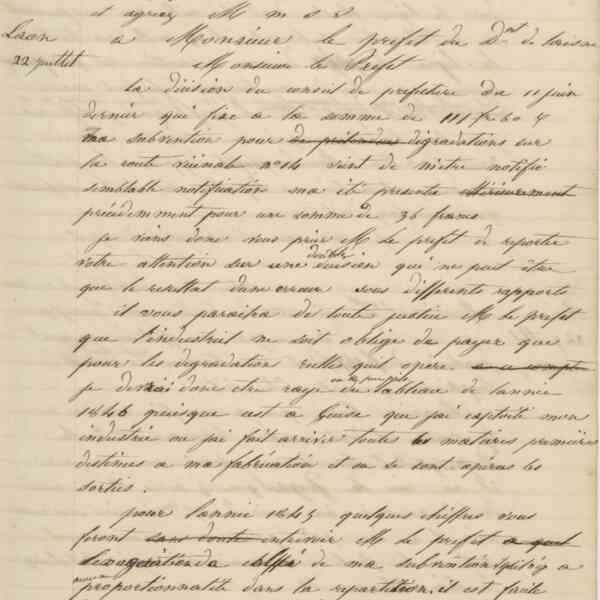 et agréez M m s d
Laon
22 juillet
a Monsieur le prefet du Dnt de laisne
Monsieur le Prefet
La décision du conseil de prefecture du 11 juin
dernier qui fixe a la somme de 111 fr 60 c
ma subvention pour de prétendues dégradations sur
la route vicinale n° 14 vient de m'etre notifié
semblable notification ma été presentée
précédemment pour une somme de 36 francs
je viens donc vous prier M le prefet de reporter
votre attention sur une double décision qui ne peut être
que le resultat dune erreur sous differents rapports
il vous paraitra de toute justice M le prefet
que l'industriel ne soit obligé de payer que
pour les degradation réelles quil opere a ce compte
je devrai donc etre rayé en principe du tableau de lannée
1846 puisque cest a Guise que jai exploité mon
industrie ou jai fait arriver toutes les matieres premières
destinées a ma fabrication et ou se sont opérés les
sorties.
pour lannée 1845 quelques chiffres vous
feront sans doute M le prefet a quel
de ma subvention
proportionnalité dans la repartition, il est facile